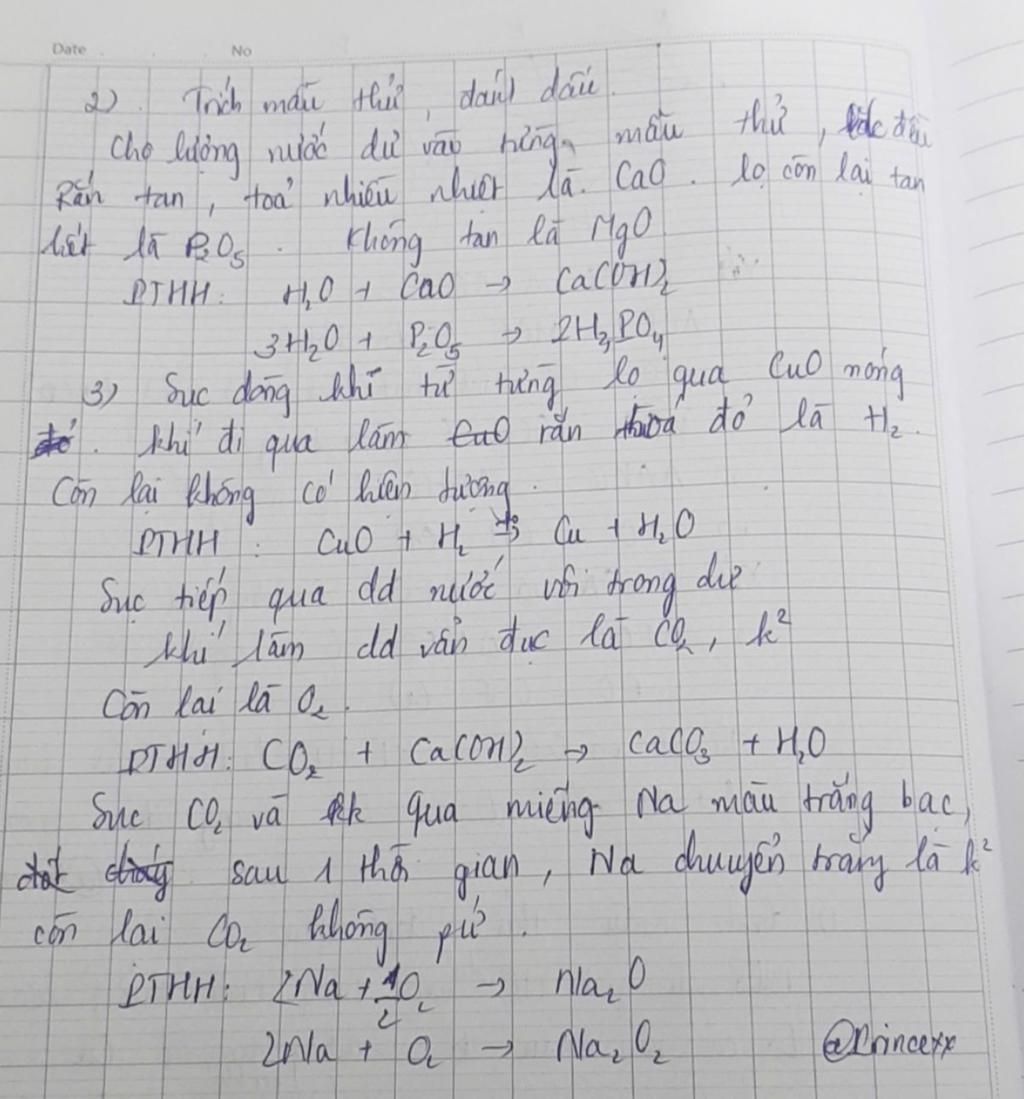 Date No
2). Trích mẫu thử, đánh dấu.
Cho lượng nước dư vào từng mẫu thử, lắc đều
Rắn tan, toả nhiều nhiệt là CaO. lọ còn lại tan
hết là P₂O₅. Không tan là MgO
PTHH: H₂O + CaO → Ca(OH)₂
3H₂O + P₂O₅ → 2H₃PO₄
3) Sục dòng khí từ từng lọ qua CuO nóng
đỏ. khí đi qua làm rắn hoá đỏ là H₂.
Còn lại không có hiện tượng.
PTHH: CuO + H₂ → Cu + H₂O
Sục tiếp qua dd nước vôi trong dư
khí làm dd vẩn đục là CO₂, k²
Còn lại là O₂.
PTHH: CO₂ + Ca(OH)₂ → CaCO₃ + H₂O
Sục CO₂ và kk qua miếng Na màu trắng bạc,
sau 1 thời gian, Na chuyển trắng là k²
còn lại CO₂ không pứ.
PTHH: 2Na + 1/2O₂ → Na₂O
2Na + O₂ → Na₂O₂ @Princexx